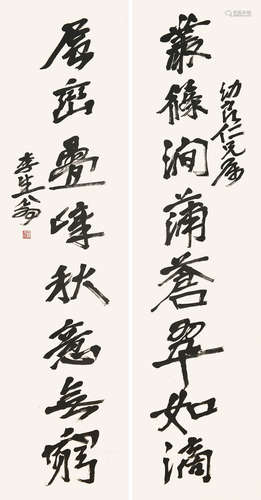 叢篠澗蒲蒼翠如滴
幼臣仁兄屬
層巒疊嶂秋意無窮
李生翁